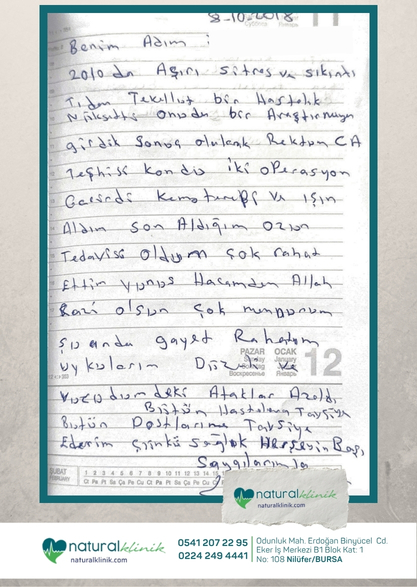 8-10-2018
Benim Adım :
2010 da Aşırı sitres ve sıkıntı
Tıdan Tevellut bir Hastalık
Nüksetti onada bir Araştırmaya
girdik Sonuç olulank Rektum CA
Teşhisi kondu iki operasyon
Gecirdi Kemoterapi ve ışın
Aldım son Aldığım ozon
Tedavisi Oldum çok rahat
Ettim yunus Hacamdan Allah
Razi olsun çok memnunum
şu anda gayet Rahatım
PAZAR OCAK
Sunday January
Воскресенье Январь
12
uykularım Düzeldi ve
Vucudumdeki Ataklar Azaldı
Bütün Hastalara Tavsiye
Bütün Dostlarıma Tavsiye
Ederim çünkü sağlık Herşeyin Başı
Saygılarımla
ŞUBAT
FEBRUARY
1 2 3 4 5 6 7 8 9 10 11 12 13 14
Ct Pa Pt Sa Ça Pe Cu Ct Pa Pt Sa Ça Pe Cu
naturalklinik
naturalklinik.com
naturalklinik
naturalklinik.com
0541 207 22 95
0224 249 4441
Odunluk Mah. Erdoğan Binyücel Cd.
Eker İş Merkezi B1 Blok Kat: 1
No: 108 Nilüfer/BURSA